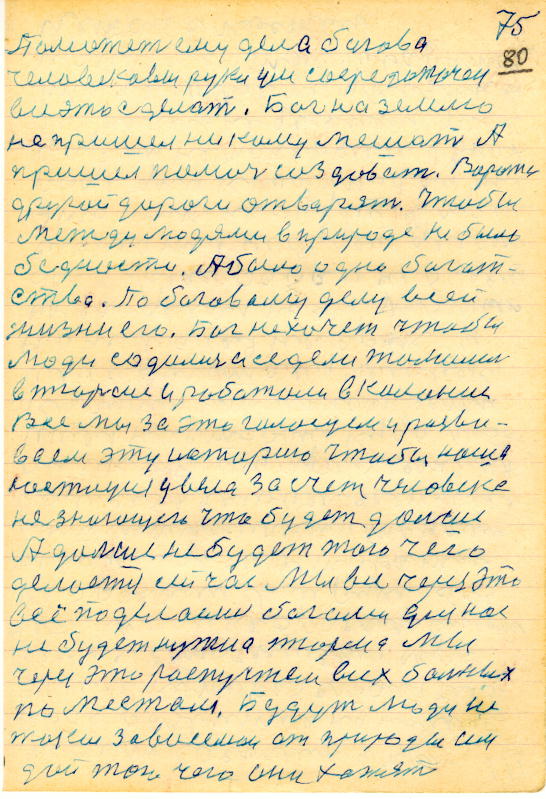 75
80
Поможет ему дела багова
человековы руки им
вы это сделат. Бог на землю
не пришел никому мешат А
пришел помоч создоват. Ворота
другой дароги отварят. Чтобы
между людями в природе не было
бедности. А было одно багат-
ства. По баговому делу всей
жизни его. Бог не хочет чтобы
люди садились и седели
в тюрме и работали в калонии
Все мы за это галосуем и разви-
ваем эту историю чтобы наша
юстиция цвела за счет человека
не знающего что будет дальше
А дальше не будет того чего
делается сичас Мы все через это
всё поделаем багами для нас
не будет нужна тюрма Мы
через это распустем всех балных
по местам. Будут люди не
такие зависемые от природы
дай того чего они хатят